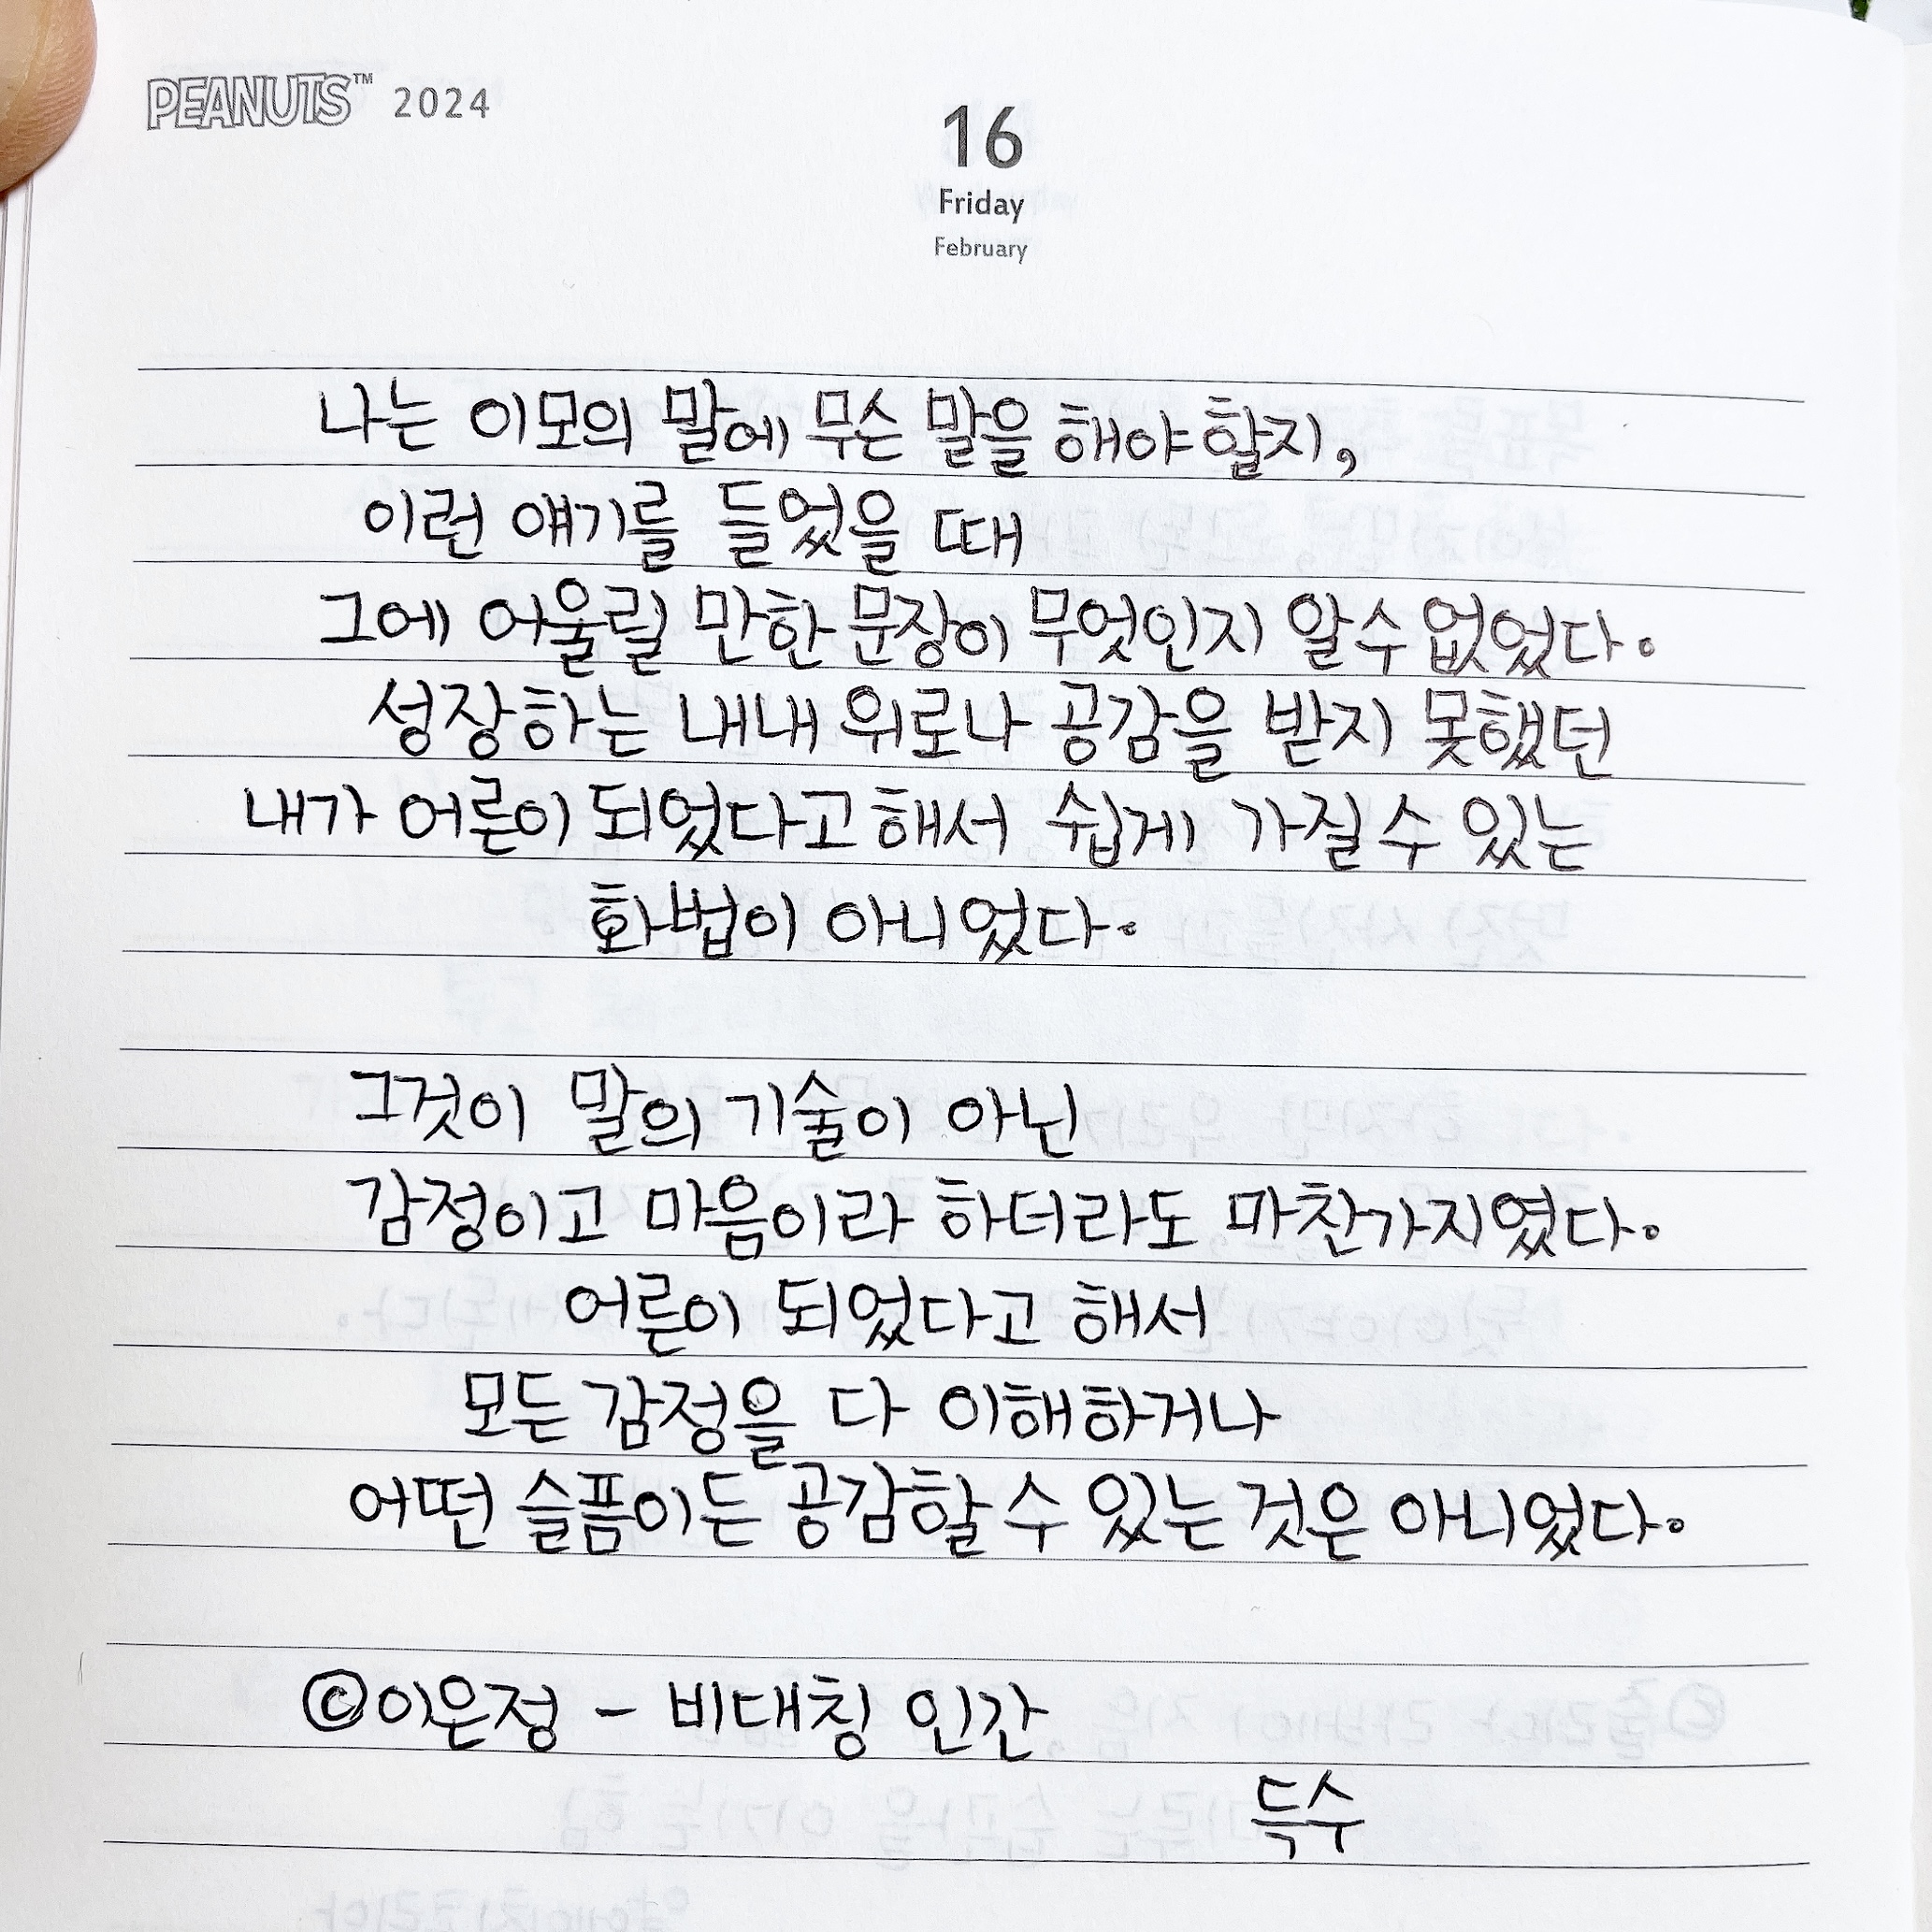 PEANUTS™ 2024
16
Friday
February
나는 이모의 말에 무슨 말을 해야 할지,
이런 얘기를 들었을 때
그에 어울릴 만한 문장이 무엇인지 알 수 없었다.
성장하는 내내 위로나 공감을 받지 못했던
내가 어른이 되었다고 해서 쉽게 가질 수 있는
화법이 아니었다.
그것이 말의 기술이 아닌
감정이고 마음이라 하더라도 마찬가지였다.
어른이 되었다고 해서
모든 감정을 다 이해하거나
어떤 슬픔이든 공감할 수 있는 것은 아니었다.
©이은정 - 비대칭 인간
득수